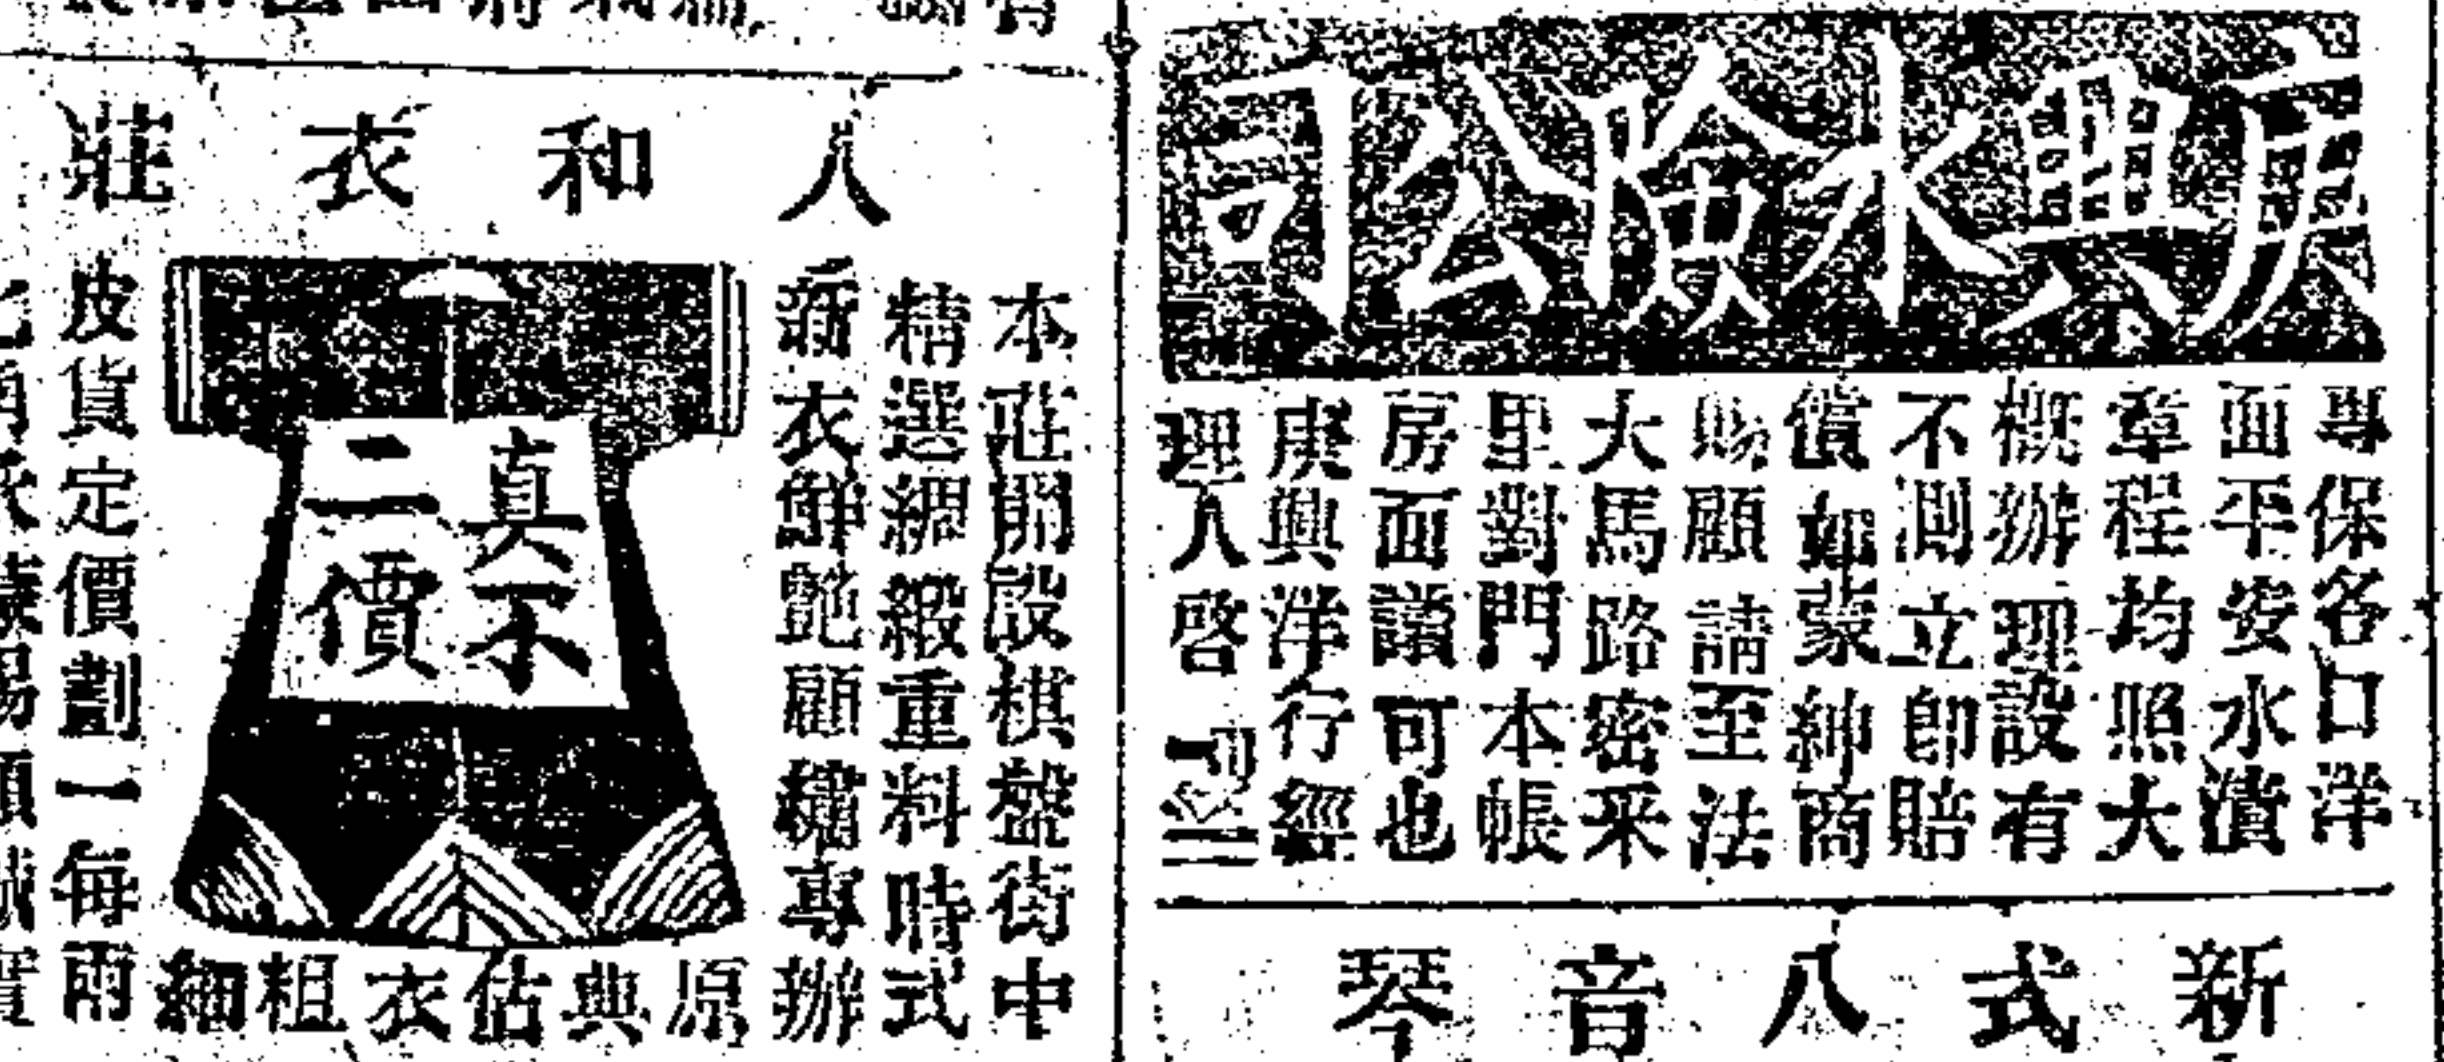 庚興水險公司
專保各口洋
面平安水漬
章程均照大
概辦理設有
不測立即賠
償如蒙紳商
賜顧請至法
大馬路密采
里對門本帳
房面議可也
庚興洋行經
理人啓
新式八音琴
人和衣莊
本莊開設棋盤街中
精選綢緞重料時式
新衣鮮艶顧繡專辦
原典估衣粗細
真不二價
皮貨定價劃一每兩